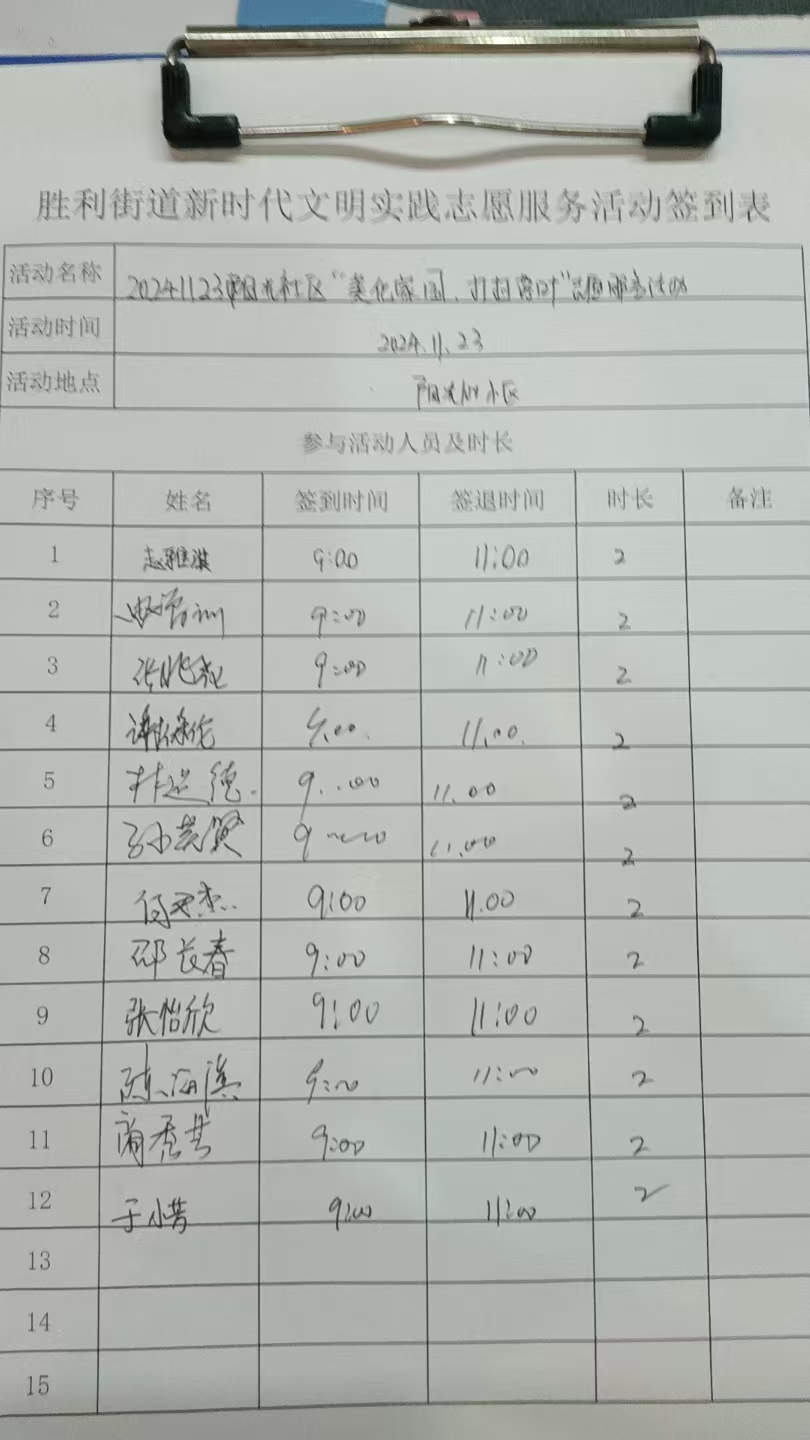 胜利街道新时代文明实践志愿服务活动签到表
活动名称 20241123阳光社区“美化家园、打扫落叶”志愿服务活动
活动时间 2024.11.23
活动地点 阳光 小区
参与活动人员及时长
序号 姓名 签到时间 签退时间 时长 备注
1 9:00 11:00 2
2 9:00 11:00 2
3 9:00 11:00 2
4 9.00. 11.00. 2
5 9..00 11.00 2
6 11.00 2
7 9:00 11.00 2
8 邵长春 9:00 11:00 2
9 张怡欣 9:00 11:00 2
10 陈海滨 9:00 11:00 2
11 9:00 11:00 2
12 于小芳 9:00 11:00 2
13
14
15